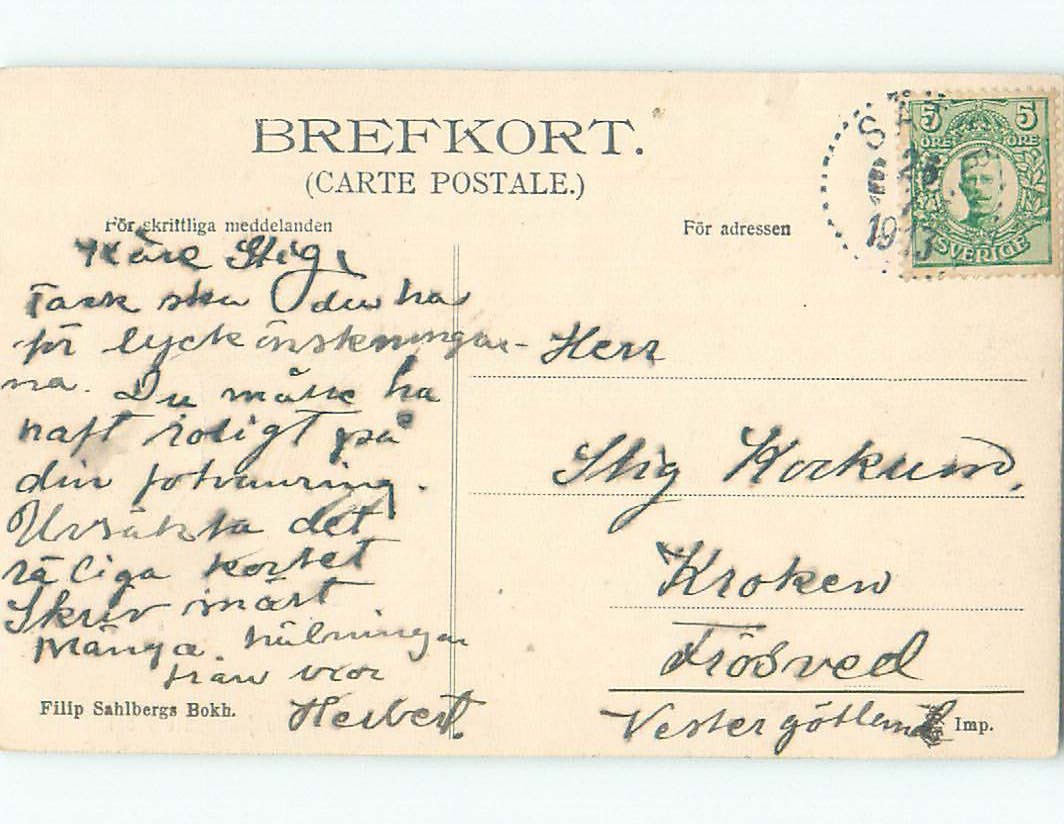 BREFKORT.
(CARTE POSTALE.)
För skriftliga meddelanden
För adressen
5 5
ÖRE ÖRE
SVERIGE
1913
Käre Stig,
Tack ska du ha
för lyckönskningar-
na. Du måste ha
haft roligt på
din fotvanring.
Ursäkta det
råliga kortet
Skriv
Många hälsningar
från
Herbert.
Filip Sahlbergs Bokh.
Herr
Stig
Kroken
Frösved
Vestergötland
Imp.